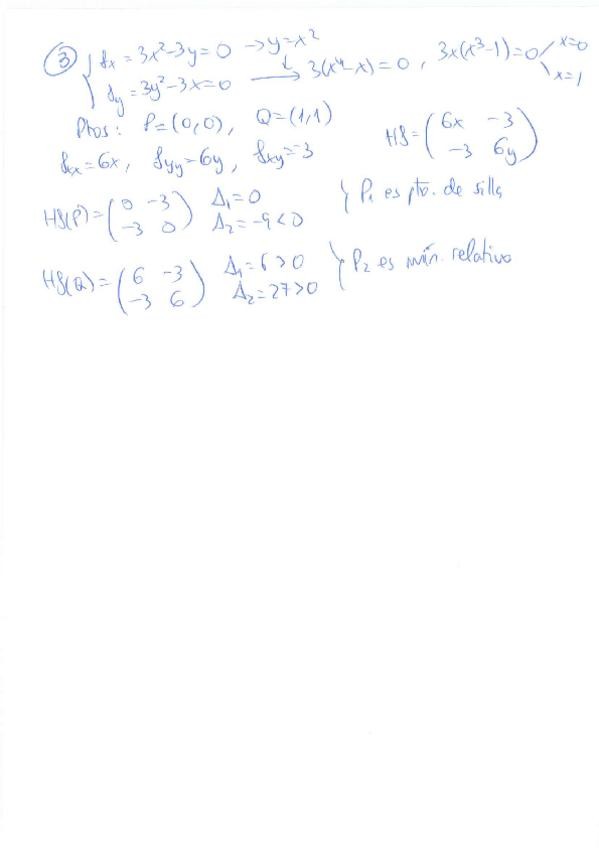 ③ { fx = 3x²-3y = 0 → y = x²
fy = 3y²-3x = 0 → 3(x⁴-x) = 0, 3x(x³-1) = 0 x=0 x=1
Ptos: P = (0,0), Q = (1,1)
fxx = 6x, fyy = 6y, fxy = -3 Hf = (6x -3 -3 6y)
Hf(P) = (0 -3 -3 0) Δ₁ = 0 Δ₂ = -9 < 0 } P₁ es pto. de silla
Hf(Q) = (6 -3 -3 6) Δ₁ = 6 > 0 Δ₂ = 27 > 0 } P₂ es mín. relativo